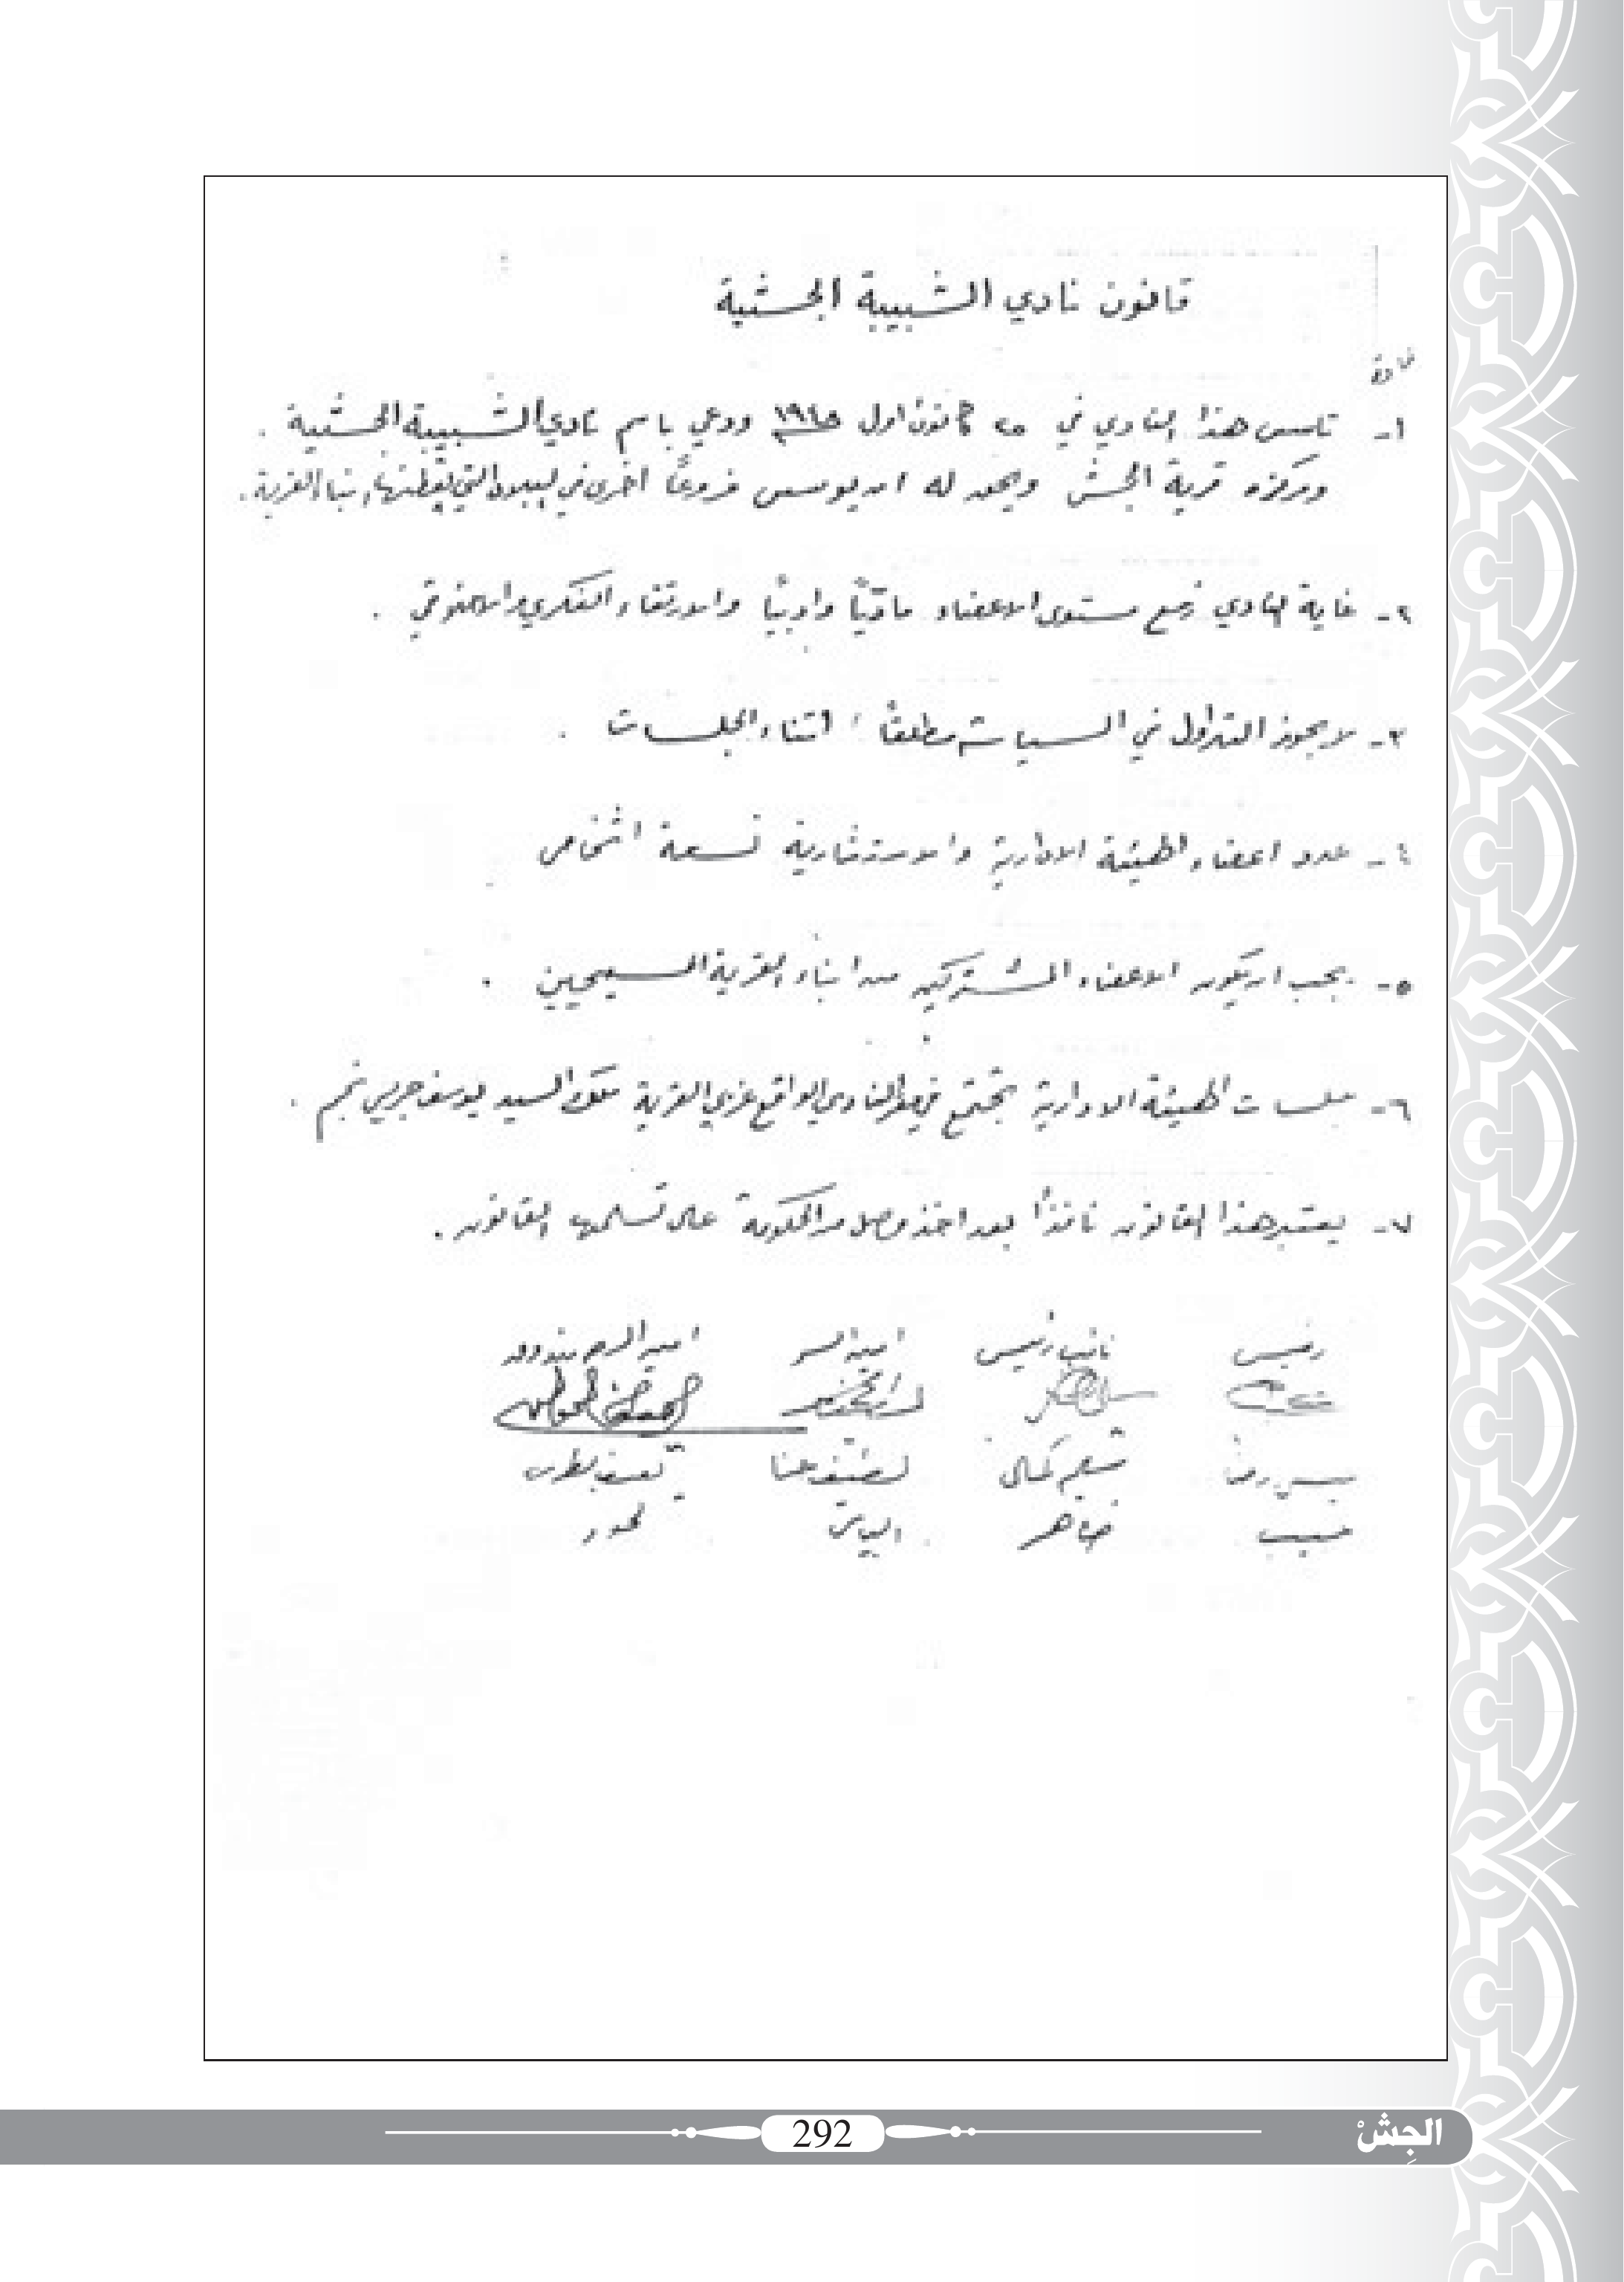 قانون نادي الشبيبة الجشية
مادة
١- تاسس هذا النادي في ٢٥ كانون اول ودعي باسم نادي الشبيبة الجشية .
ومركزه قرية الجش ويحق له ان يوسس فروعاً اخرى في التي يقطنها ابناء القرية .
٢- غاية النادي رفع مستوى الاعضاء مادياً وادبياً والارتقاء الفكري والاخلاقي .
٣- لا يجوز التداول في السياسة مطلقاً اثناء الجلسات .
٤- عدد اعضاء الهيئة الادارية والاستشارية تسعة اشخاص
٥- يجب ان يكون الاعضاء المشتركين من ابناء القرية المسيحيين .
٦- جلسات الهيئة الادارية تجتمع في مقر النادي الواقع غربي القرية ملك السيد يوسف جريس نجم .
٧- يعتبر هذا القانون نافذاً بعد اخذ وصل من الحكومة على تسلمها القانون .
رئيس نائب رئيس امين السر امين الصندوق
سليم حنا يوسف بطرس
حبيب ضاهر الياس
292
الجِشْ